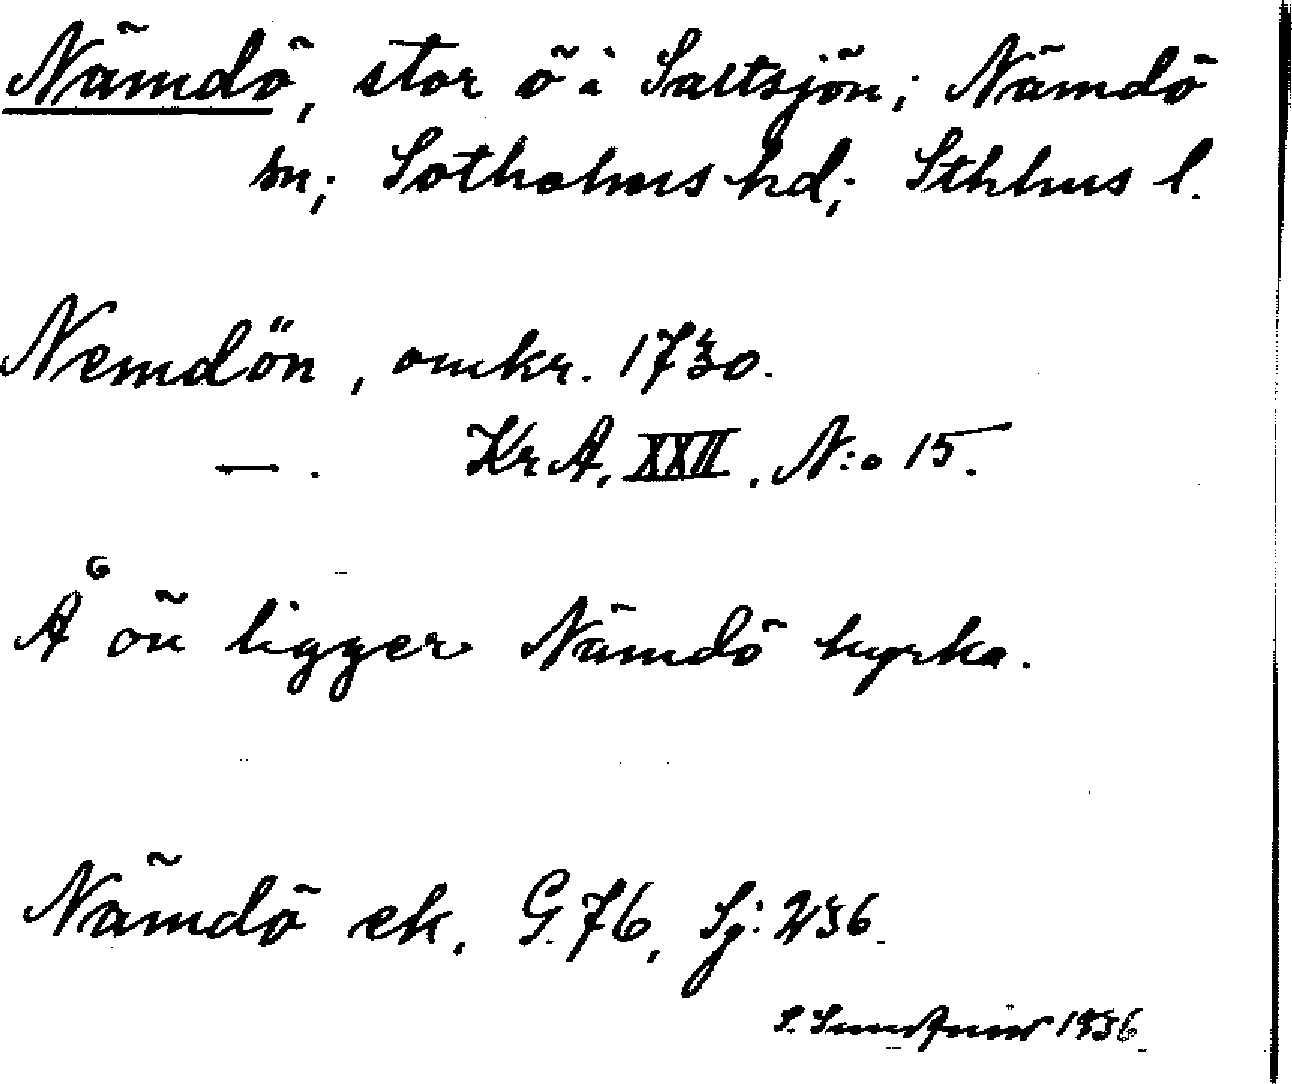 Nämdö, stor ö i Saltsjön; Nämdö
sn; Sotholms hd; Sthlms l.
Nemdön, omkr. 1730.
—. KrA, XXII, N:o 15.
Å ön ligger Nämdö kyrka.
Nämdö ek. G. 76, Sj: 236.
S. 1936